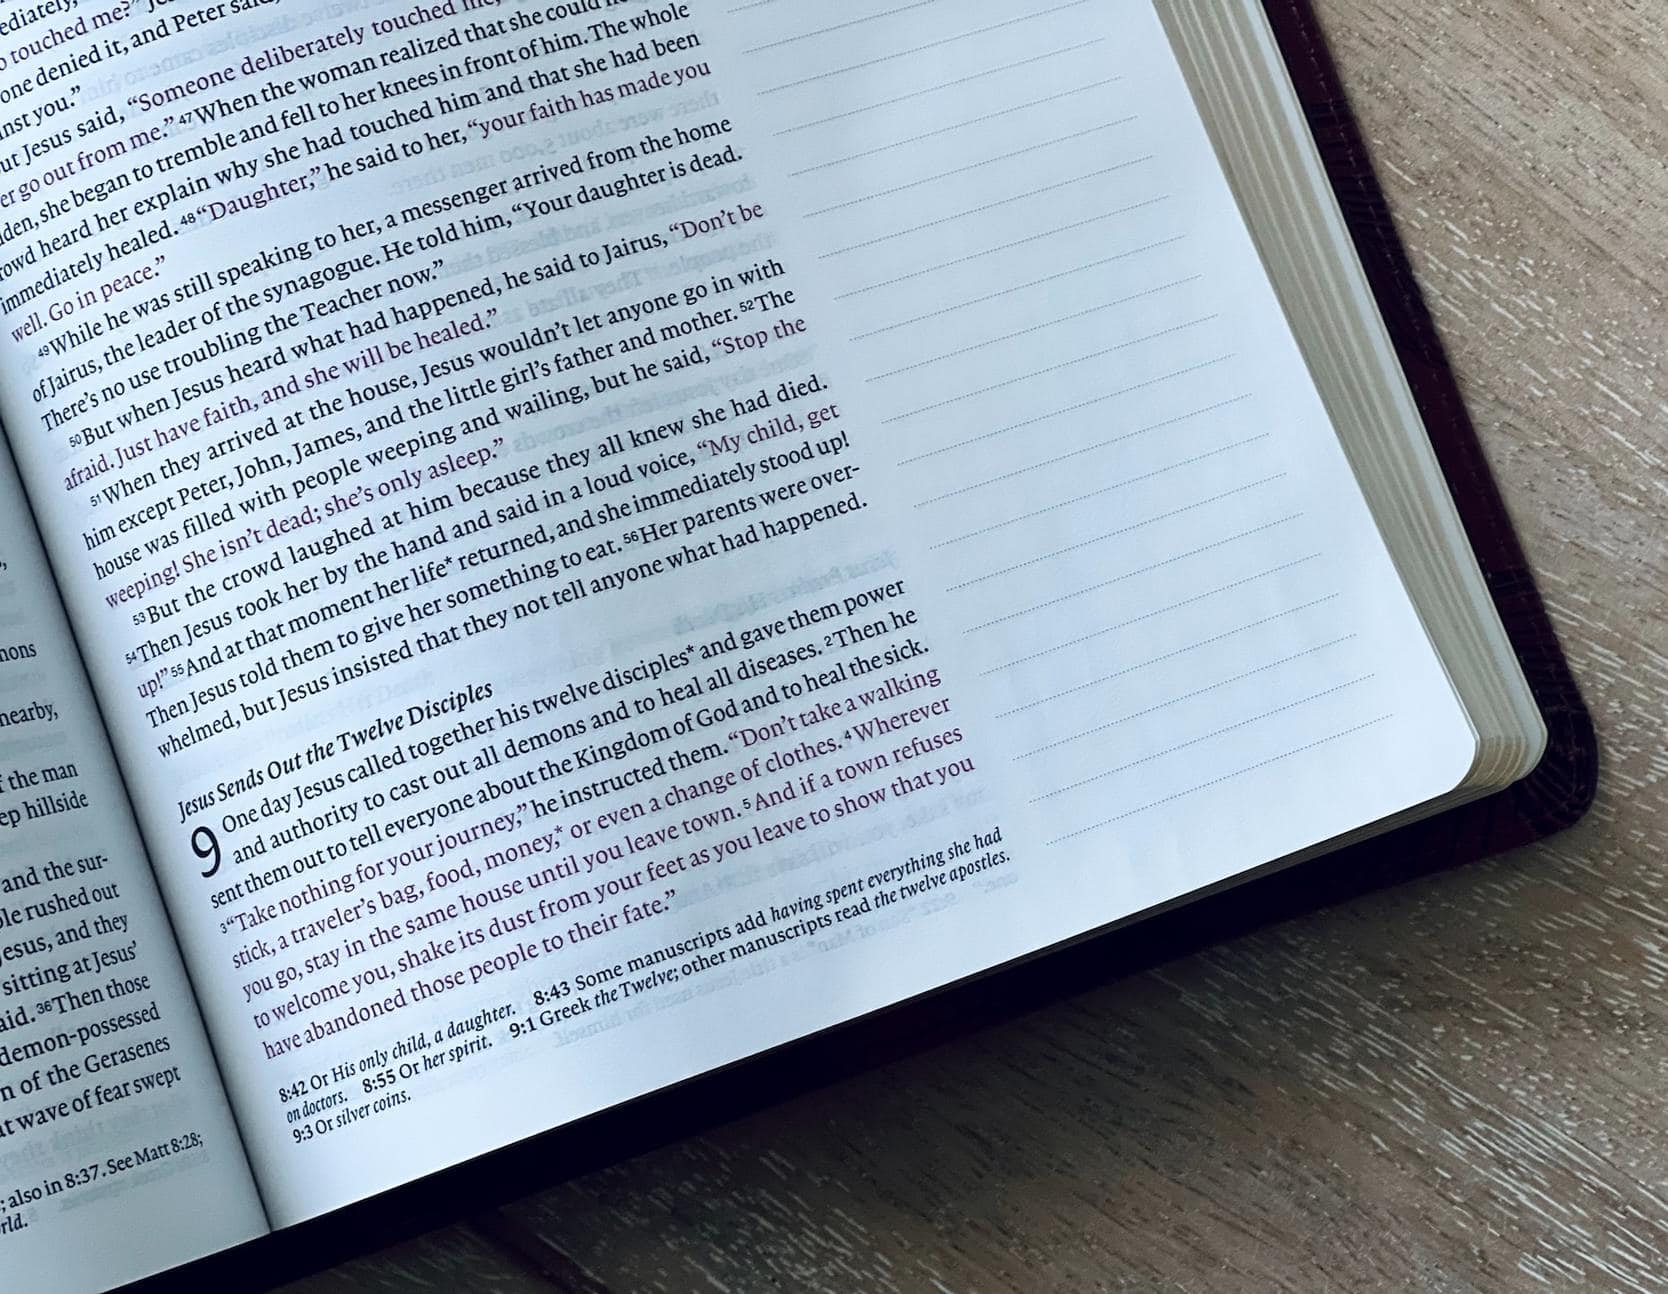 nons
nearby,
f the man
ep hillside
and the sur-
ole rushed out
esus, and they
sitting at Jesus'
aid. 36Then those
demon-possessed
n of the Gerasenes
at wave of fear swept
; also in 8:37. See Matt 8:28;
rld.
ediately,
o touched me?"
one denied it, and Peter said,
inst you."
ut Jesus said, "Someone deliberately touched me,
er go out from me." 47When the woman realized that she could
den, she began to tremble and fell to her knees in front of him. The whole
rowd heard her explain why she had touched him and that she had been
immediately healed. 48"Daughter," he said to her, "your faith has made you
well. Go in peace."
49While he was still speaking to her, a messenger arrived from the home
of Jairus, the leader of the synagogue. He told him, "Your daughter is dead.
There's no use troubling the Teacher now."
50But when Jesus heard what had happened, he said to Jairus, "Don't be
afraid. Just have faith, and she will be healed."
51When they arrived at the house, Jesus wouldn't let anyone go in with
him except Peter, John, James, and the little girl's father and mother. 52The
house was filled with people weeping and wailing, but he said, "Stop the
weeping! She isn't dead; she's only asleep."
53But the crowd laughed at him because they all knew she had died.
54Then Jesus took her by the hand and said in a loud voice, "My child, get
up!" 55And at that moment her life* returned, and she immediately stood up!
Then Jesus told them to give her something to eat. 56Her parents were over-
whelmed, but Jesus insisted that they not tell anyone what had happened.
Jesus Sends Out the Twelve Disciples
9 One day Jesus called together his twelve disciples* and gave them power
and authority to cast out all demons and to heal all diseases. 2Then he
sent them out to tell everyone about the Kingdom of God and to heal the sick.
3"Take nothing for your journey," he instructed them. "Don't take a walking
stick, a traveler's bag, food, money,* or even a change of clothes. 4Wherever
you go, stay in the same house until you leave town. 5And if a town refuses
to welcome you, shake its dust from your feet as you leave to show that you
have abandoned those people to their fate."
8:42 Or His only child, a daughter. 8:43 Some manuscripts add having spent everything she had
on doctors. 8:55 Or her spirit. 9:1 Greek the Twelve; other manuscripts read the twelve apostles.
9:3 Or silver coins.